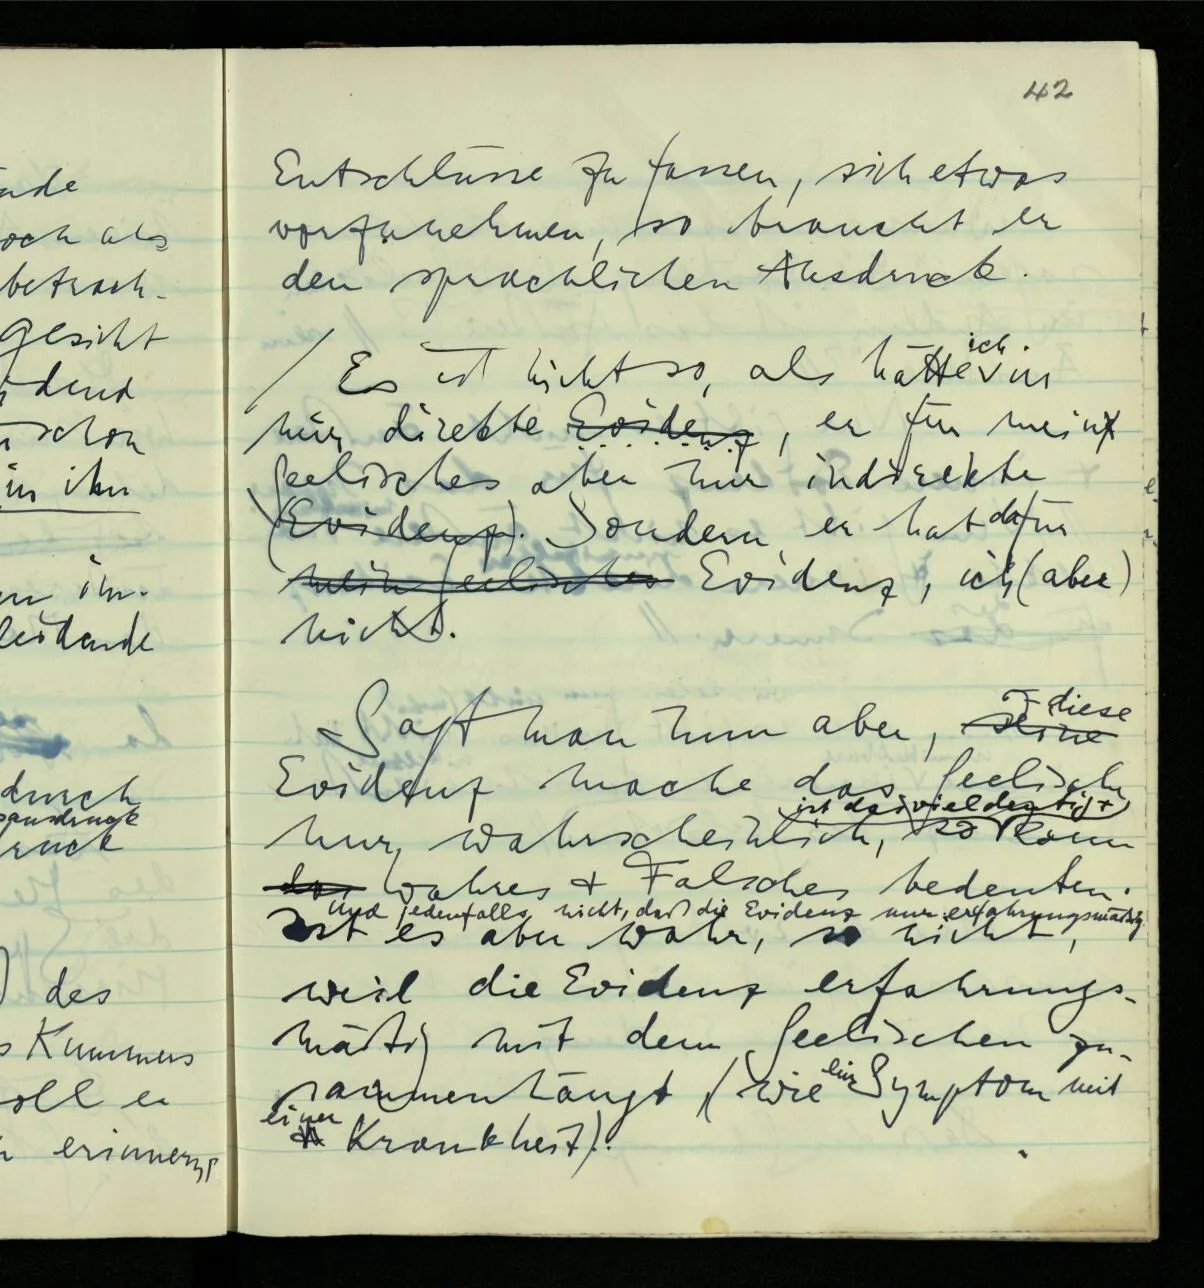 42
ade
och als
betrach-
Gesicht
dend
schon
in ihn
ihn.
leidende
durch
ruck
des
Kummers
soll er
erinnern,
Entschlüsse zu fassen, sich etwas
vorzunehmen, so braucht er
den sprachlichen Ausdruck.
/ Es ist nicht so, als hätte ich in
mir direkte Evidenz, er für mein
Seelisches aber nur indirekte
(Evidenz). Sondern er hat dafür
mein Seelisches Evidenz, ich (aber)
nicht.
Sagt man nun aber, seine diese
Evidenz mache das Seelische
nur wahrscheinlich, so ist das vieldeutig + kann
das Wahres + Falsches bedeuten.
und jedenfalls nicht, daß die Evidenz nur erfahrungsmäßig
Ist es aber wahr, so nicht,
weil die Evidenz erfahrungs-
mäßig mit dem Seelischen zu-
sammenhängt (wie ein Symptom mit
einer Krankheit).